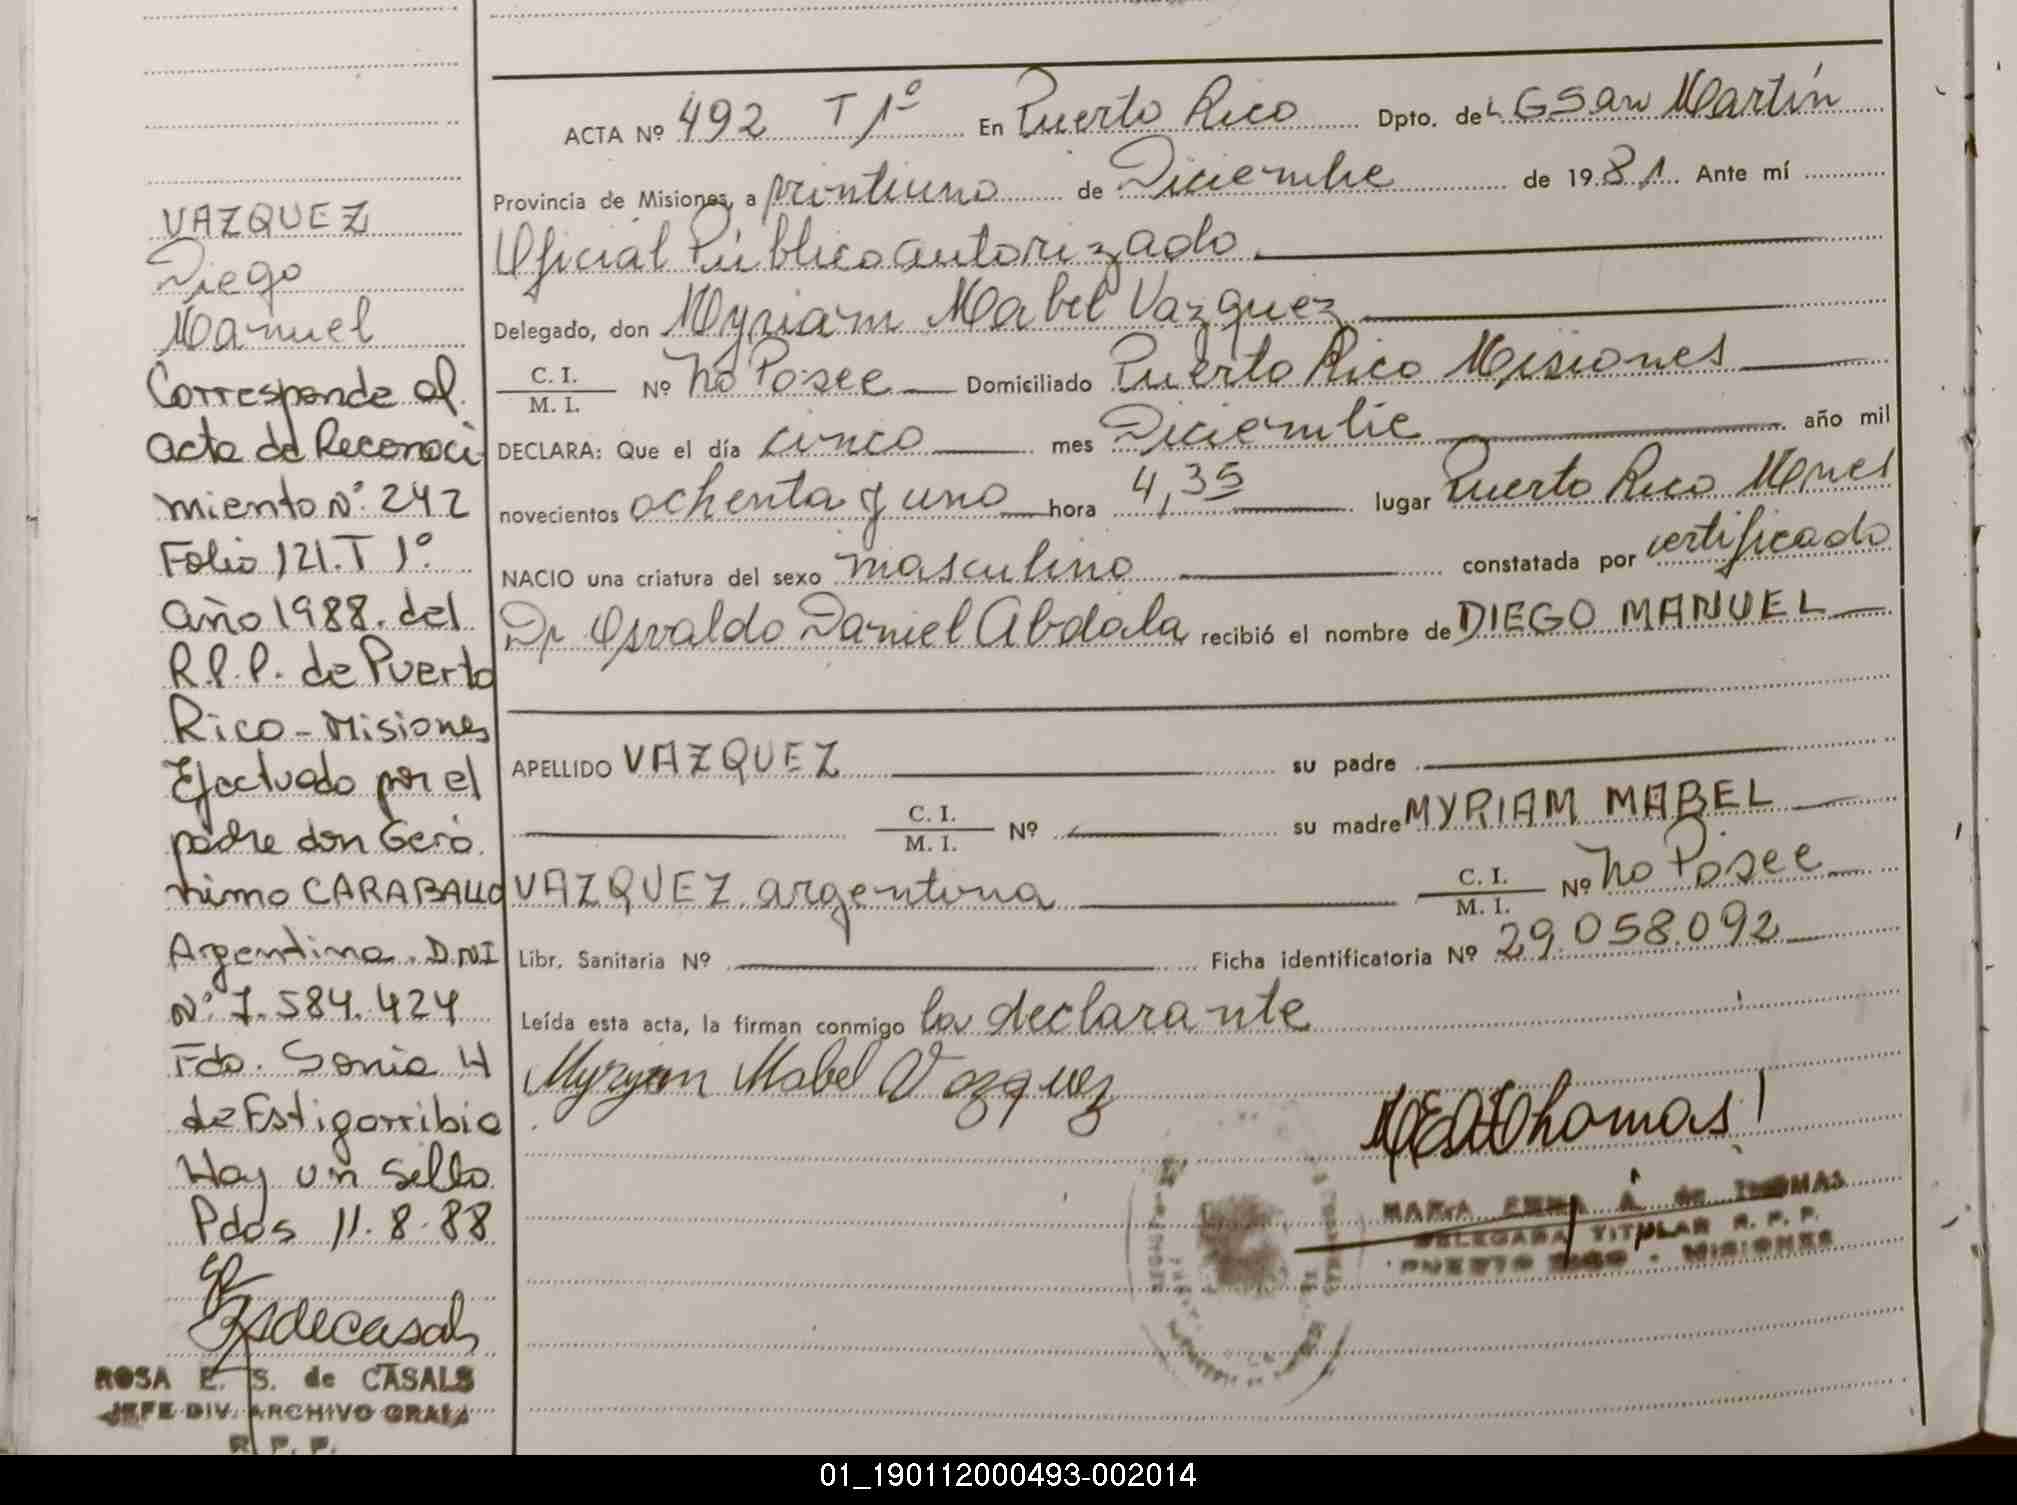 VAZQUEZ
Diego
Manuel
Corresponde al
acta de Reconoci
miento Nº 242
Folio 121. T 1º.
año 1988. del
R.P.P. de Puerto
Rico - Misiones
Efectuado por el
padre don Geró
nimo CARABALLO
Argentino. D.N.I
Nº 7.584.424
Fdo. Sonia H
de Estigarribia
Hay un sello
Pdas 11.8.88
ROSA E. S. de CASALS
JEFE DIV. ARCHIVO GRAL.
R. P. P.
ACTA Nº 492 T 1º En Puerto Rico Dpto. de L G San Martín
Provincia de Misiones, a vintiuno de Diciembre de 1981. Ante mí
Oficial Público autorizado
Delegado, don Myriam Mabel Vazquez
C. I. / M. I. Nº No Posee Domiciliado Puerto Rico Misiones
DECLARA: Que el día cinco mes Diciembre año mil
novecientos ochenta y uno hora 4,35 lugar Puerto Rico Mnes
NACIO una criatura del sexo masculino constatada por certificado
Dr Osvaldo Daniel Abdala recibió el nombre de DIEGO MANUEL
APELLIDO VAZQUEZ su padre
C. I. / M. I. Nº su madre MYRIAM MABEL
VAZQUEZ argentina C. I. / M. I. Nº No Posee
Libr. Sanitaria Nº Ficha identificatoria Nº 29.058.092
Leída esta acta, la firman conmigo la declarante
Myryam Mabel Vazquez
MARIA EMMA A. de THOMAS
DELEGADA TITULAR R. P. P.
PUERTO RICO - MISIONES
01_190112000493-002014